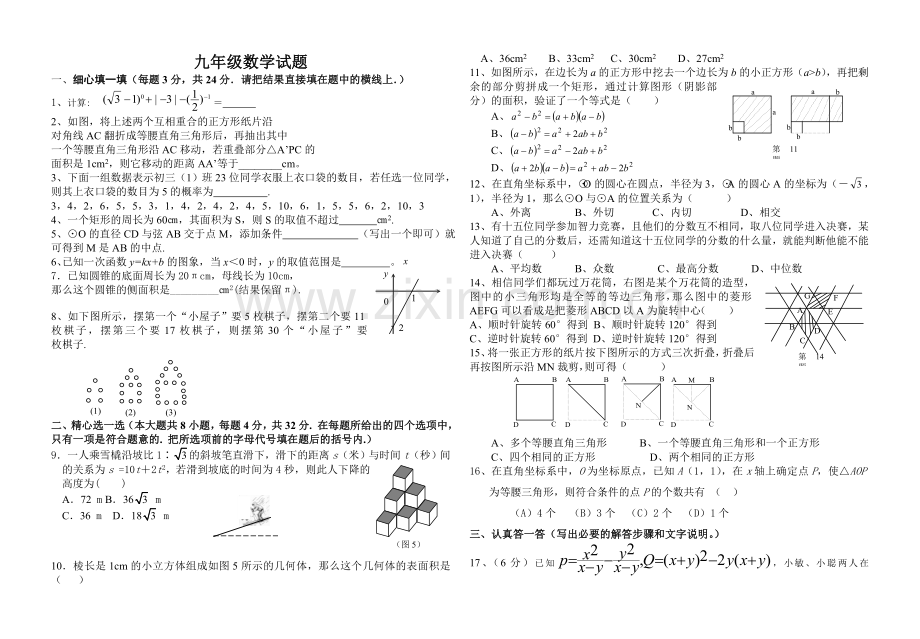 九年级数学试题
一、细心填一填（每题3分，共24分．请把结果直接填在题中的横线上．）
1、计算: (√3−1)⁰+|−3|−(1/2)⁻¹=______
2、如图，将上述两个互相重合的正方形纸片沿
对角线AC翻折成等腰直角三角形后，再抽出其中
一个等腰直角三角形沿AC移动，若重叠部分△A’PC的
面积是1cm²，则它移动的距离AA’等于______cm。
3、下面一组数据表示初三（1）班23位同学衣服上衣口袋的数目，若任选一位同学，
则其上衣口袋的数目为5的概率为________.
3，4，2，6，5，5，3，1，4，2，4，2，4，5，10，6，1，5，5，6，2，10，3
4、一个矩形的周长为60㎝，其面积为S，则S的取值不超过______cm².
5、⊙O的直径CD与弦AB交于点M，添加条件____________（写出一个即可）就
可得到M是AB的中点.
6、已知一次函数y=kx+b的图象，当x＜0时，y的取值范围是________。x
7．已知圆锥的底面周长为20πcm，母线长为10cm，
那么这个圆锥的侧面积是________cm²(结果保留π).
y
0
1
2
8、如下图所示，摆第一个“小屋子”要5枚棋子，摆第二个要11
枚棋子，摆第三个要17枚棋子，则摆第30个“小屋子”要
枚棋子.
(1) (2) (3)
二、精心选一选（本大题共8小题，每题4分，共32分．在每题所给出的四个选项中，
只有一项是符合题意的．把所选项前的字母代号填在题后的括号内.）
9．一人乘雪橇沿坡比1∶√3的斜坡笔直滑下，滑下的距离s（米）与时间t（秒）间
的关系为s =10t＋2t²，若滑到坡底的时间为4秒，则此人下降的
高度为( )
A．72 m B．36√3 m
C．36 m D．18√3 m
(图5)
10．棱长是1cm的小立方体组成如图5所示的几何体，那么这个几何体的表面积是
（ ）
A、36cm² B、33cm² C、30cm² D、27cm²
11、如图所示，在边长为a的正方形中挖去一个边长为b的小正方形（a>b），再把剩
余的部分剪拼成一个矩形，通过计算图形（阴影部
分）的面积，验证了一个等式是（ ）
A、a²−b²=(a+b)(a−b)
B、(a−b)²=a²+2ab+b²
C、(a−b)²=a²−2ab+b²
D、(a+2b)(a−b)=a²+ab−2b²
a
a
b
b
a
b
b
第 11
12、在直角坐标系中，⊙O的圆心在圆点，半径为3，⊙A的圆心A的坐标为（−√3，
1），半径为1，那么⊙O与⊙A的位置关系为（ ）
A、外离 B、外切 C、内切 D、相交
13、有十五位同学参加智力竞赛，且他们的分数互不相同，取八位同学进入决赛，某
人知道了自己的分数后，还需知道这十五位同学的分数的什么量，就能判断他能不能
进入决赛（ ）
A、平均数 B、众数 C、最高分数 D、中位数
14、相信同学们都玩过万花筒，右图是某个万花筒的造型，
图中的小三角形均是全等的等边三角形，那么图中的菱形
AEFG可以看成是把菱形ABCD以A为旋转中心（ ）
A、顺时针旋转60°得到 B、顺时针旋转120°得到
C、逆时针旋转60°得到 D、逆时针旋转120°得到
G F
A E
B D
C
第 14
15、将一张正方形的纸片按下图所示的方式三次折叠，折叠后
再按图所示沿MN裁剪，则可得（ ）
A B A B A B A M B
N N
D C D C D C D C
A、多个等腰直角三角形 B、一个等腰直角三角形和一个正方形
C、四个相同的正方形 D、两个相同的正方形
16、在直角坐标系中，O为坐标原点，已知A（1，1），在x轴上确定点P，使△AOP
为等腰三角形，则符合条件的点P的个数共有 （ ）
（A）4个 （B）3个 （C）2个 （D）1个
三、认真答一答（写出必要的解答步骤和文字说明。）
17、（6分）已知p=x²/(x−y)−y²/(x−y),Q=(x+y)²−2y(x+y)，小敏、小聪两人在